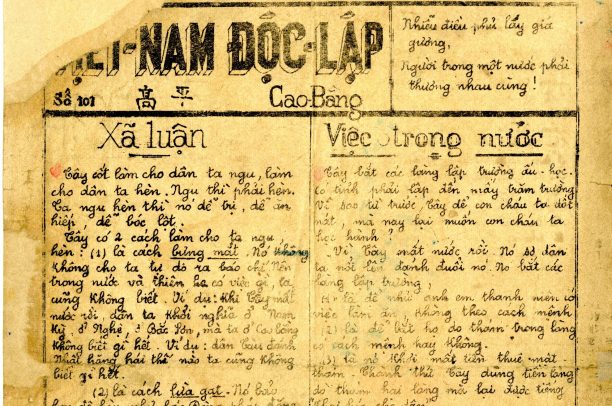 VIỆT-NAM ĐỘC-LẬP
Số 101 高平 Cao-Bằng
Nhiễu điều phủ lấy giá
gương,
Người trong một nước phải
thương nhau cùng!
Xã luận
Tây cốt làm cho dân ta ngu, làm
cho dân ta hèn. Ngu thì phải hèn.
Ta ngu hèn thì nó dễ trị, dễ ăn
hiếp, dễ bóc lột.
Tây có 2 cách làm cho ta ngu,
hèn: (1) là cách bưng mắt. Nó không
không cho ta tự do ra báo chí. Nên
trong nước và thiên hạ có việc gì, ta
cũng không biết. Ví dụ: khi Tây mất
nước rồi, dân ta khởi nghĩa ở Nam
Kỳ, ở Nghệ, ở Bắc Sơn, mà ta ở Cao Bằng
không biết gì hết. Ví dụ: dân Tàu đánh
Nhật hăng hái thế nào ta cũng không
biết gì hết.
(2) là cách lừa gạt. Nó bảo
Việc trong nước
Tây bắt các làng lập trường ấu-học.
Cố tình phải lập đến mấy trăm trường
Vì sao từ trước, Tây để con cháu ta dốt
nát, mà nay lại muốn con cháu ta
học hành?
Vì Tây mất nước rồi. Nó sợ dân
ta nổi lên đánh đuổi nó. Nó bắt các
làng lập trường,
1- là để nhử anh em thanh niên có
việc làm ăn, không theo cách mệnh
(2) là để bắt họ do thám trong làng
có cách mệnh hay không.
(3) là nó khỏi mất tiền thuê mật-
thám. Thành thử Tây dùng tiền làng
dò thám hại làng mà lại được tiếng